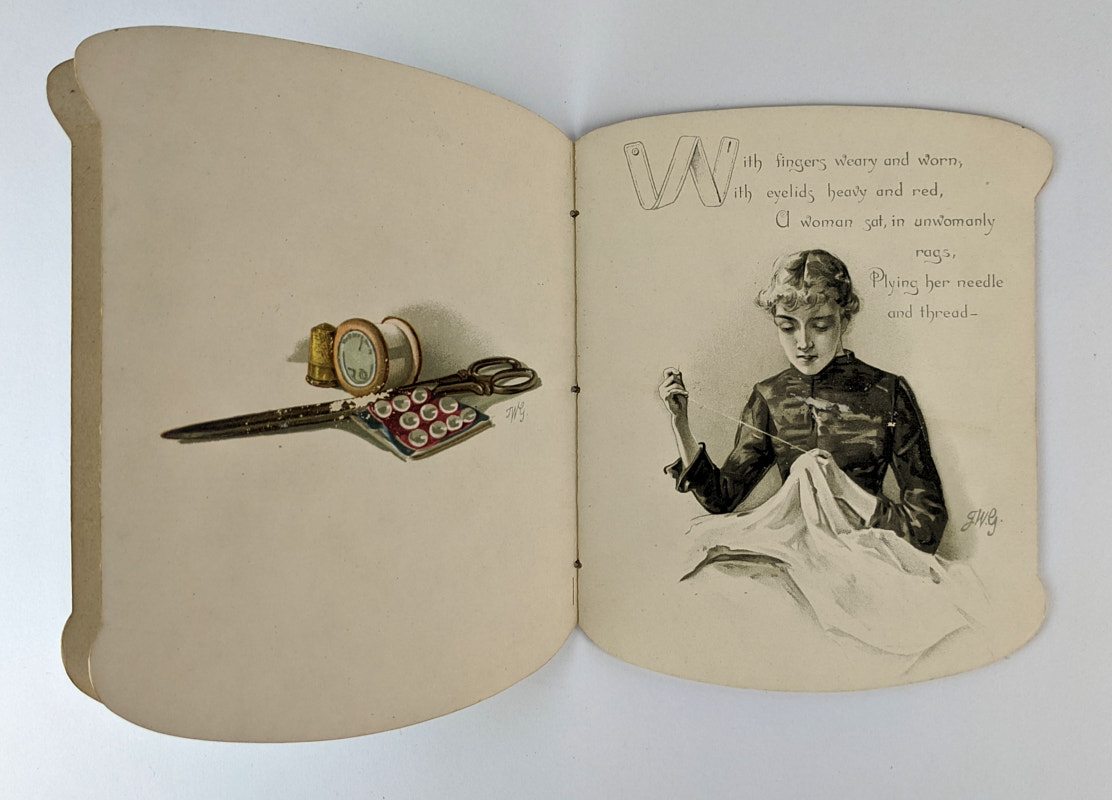 JWG.
With fingers weary and worn,
With eyelids heavy and red,
A woman sat, in unwomanly
rags,
Plying her needle
and thread—
J.W.G.